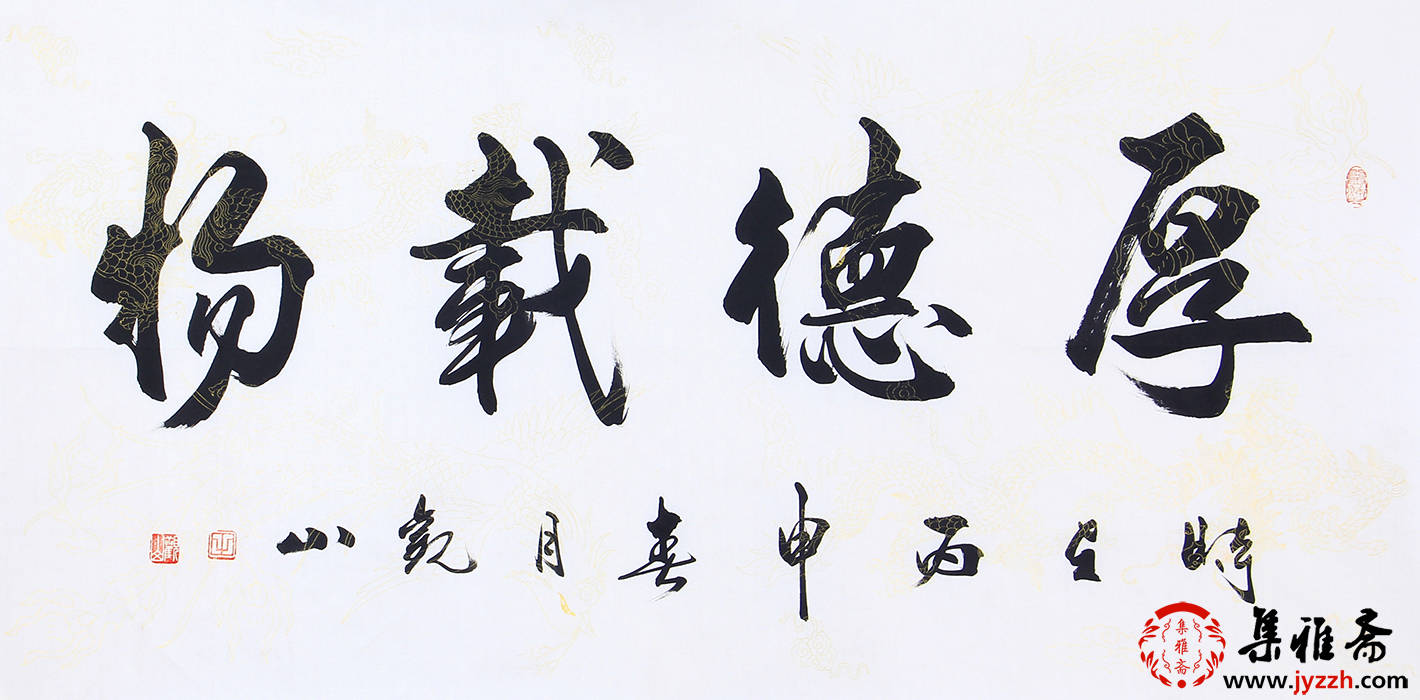 厚德载物
时在丙申春月观山
集雅斋
集雅斋
www.jyzzh.com